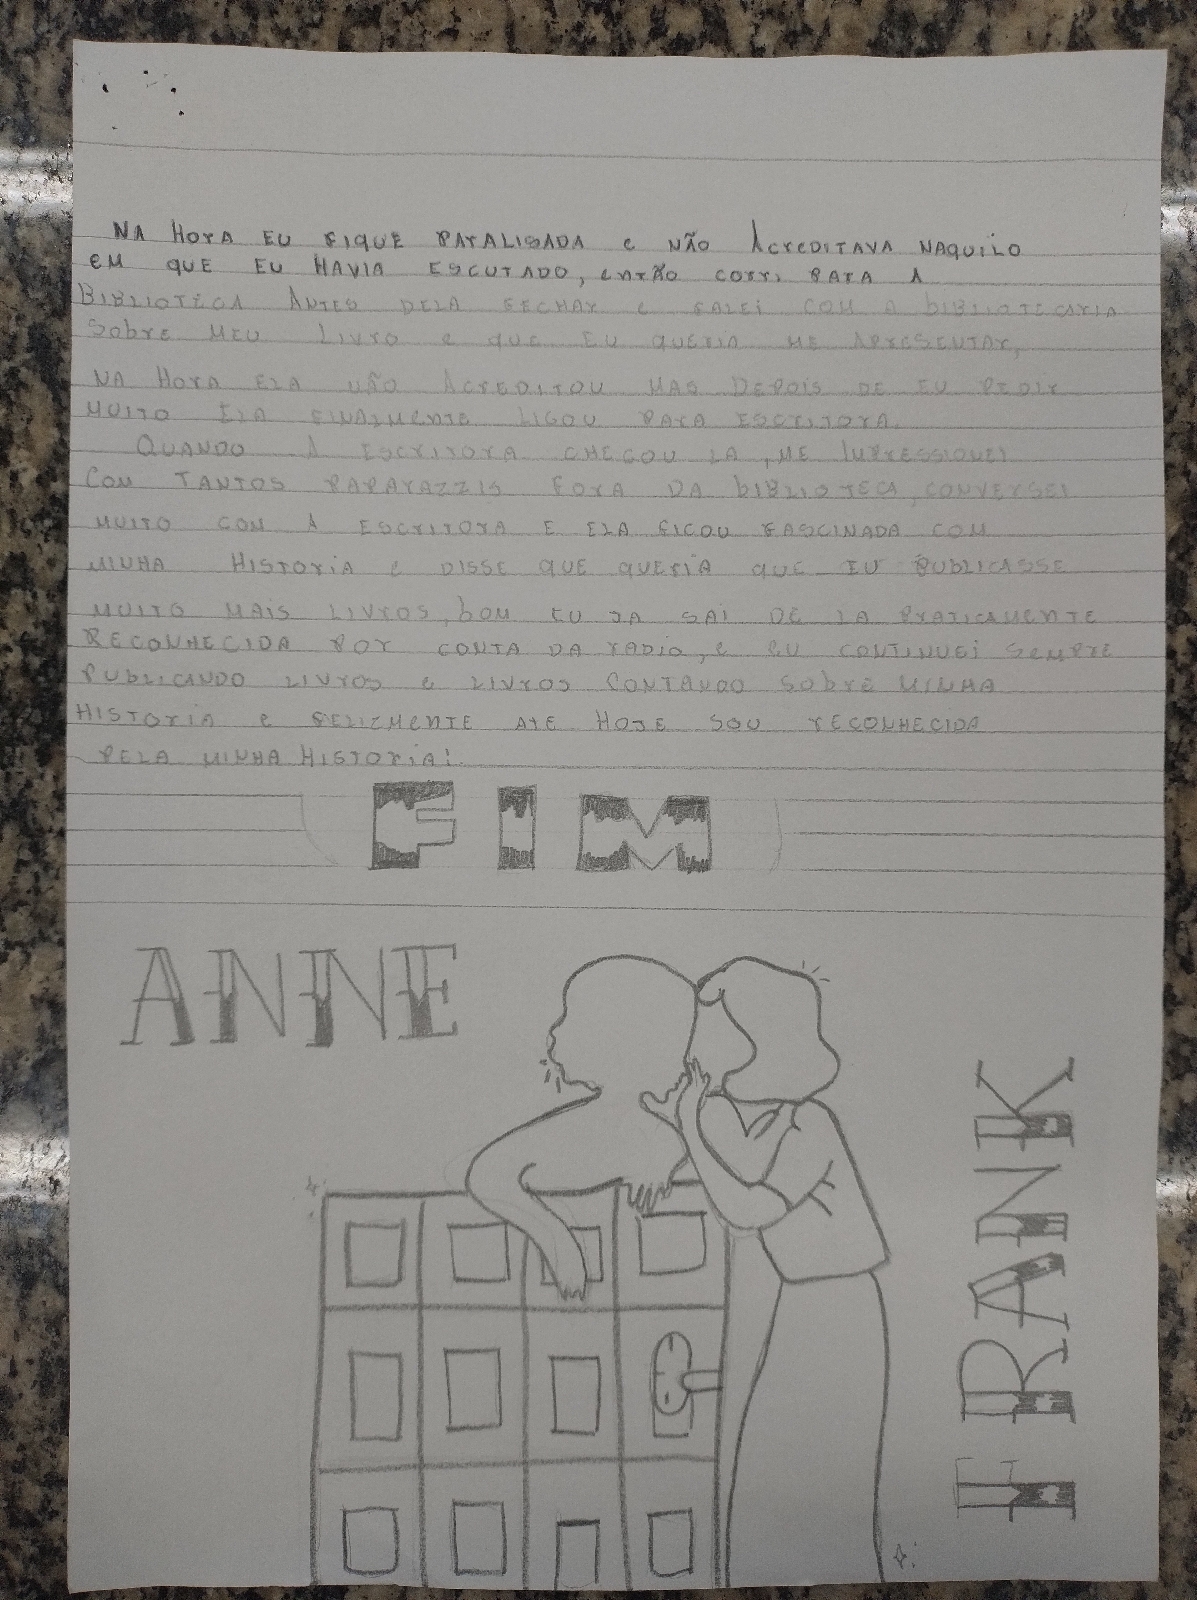 NA HORA EU FIQUE PARALISADA E NÃO ACREDITAVA NAQUILO
EM QUE EU HAVIA ESCUTADO, ENTÃO CORRI PARA A
BIBLIOTECA ANTES DELA FECHAR E FALEI COM A BIBLIOTECARIA
SOBRE MEU LIVRO E QUE EU QUERIA ME APRESENTAR,
NA HORA ELA NÃO ACREDITOU MAS DEPOIS DE EU PEDIR
MUITO ELA FINALMENTE LIGOU PARA ESCRITORA.
QUANDO A ESCRITORA CHEGOU LA, ME IMPRESSIONEI
COM TANTOS PAPARAZZIS FORA DA BIBLIOTECA, CONVERSEI
MUITO COM A ESCRITORA E ELA FICOU FASCINADA COM
MINHA HISTORIA E DISSE QUE QUERIA QUE EU PUBLICASSE
MUITO MAIS LIVROS, BOM EU JA SAI DE LA PRATICAMENTE
RECONHECIDA POR CONTA DA RADIO, E EU CONTINUEI SEMPRE
PUBLICANDO LIVROS E LIVROS CONTANDO SOBRE MINHA
HISTORIA E FELIZMENTE ATE HOJE SOU RECONHECIDA
PELA MINHA HISTORIA!
FIM
ANNE
FRANK